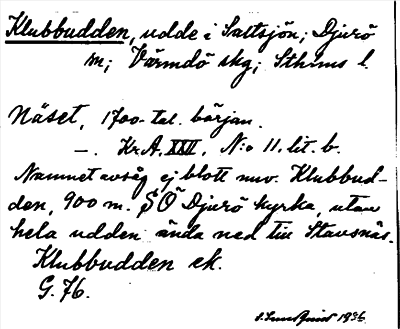 Klubbudden, udde i Saltsjön; Djurö
sn; Värmdö skg; Sthlms l.
Näset, 1700-tal. början.
–. Kr.A. XXII, N:o 11. lit. b.
Namnet avsåg ej blott nuv. Klubbud-
den, 900 m. SÖ Djurö kyrka, utan
hela udden ända ned till Stavsnäs.
Klubbudden ek.
G. 76.
1936